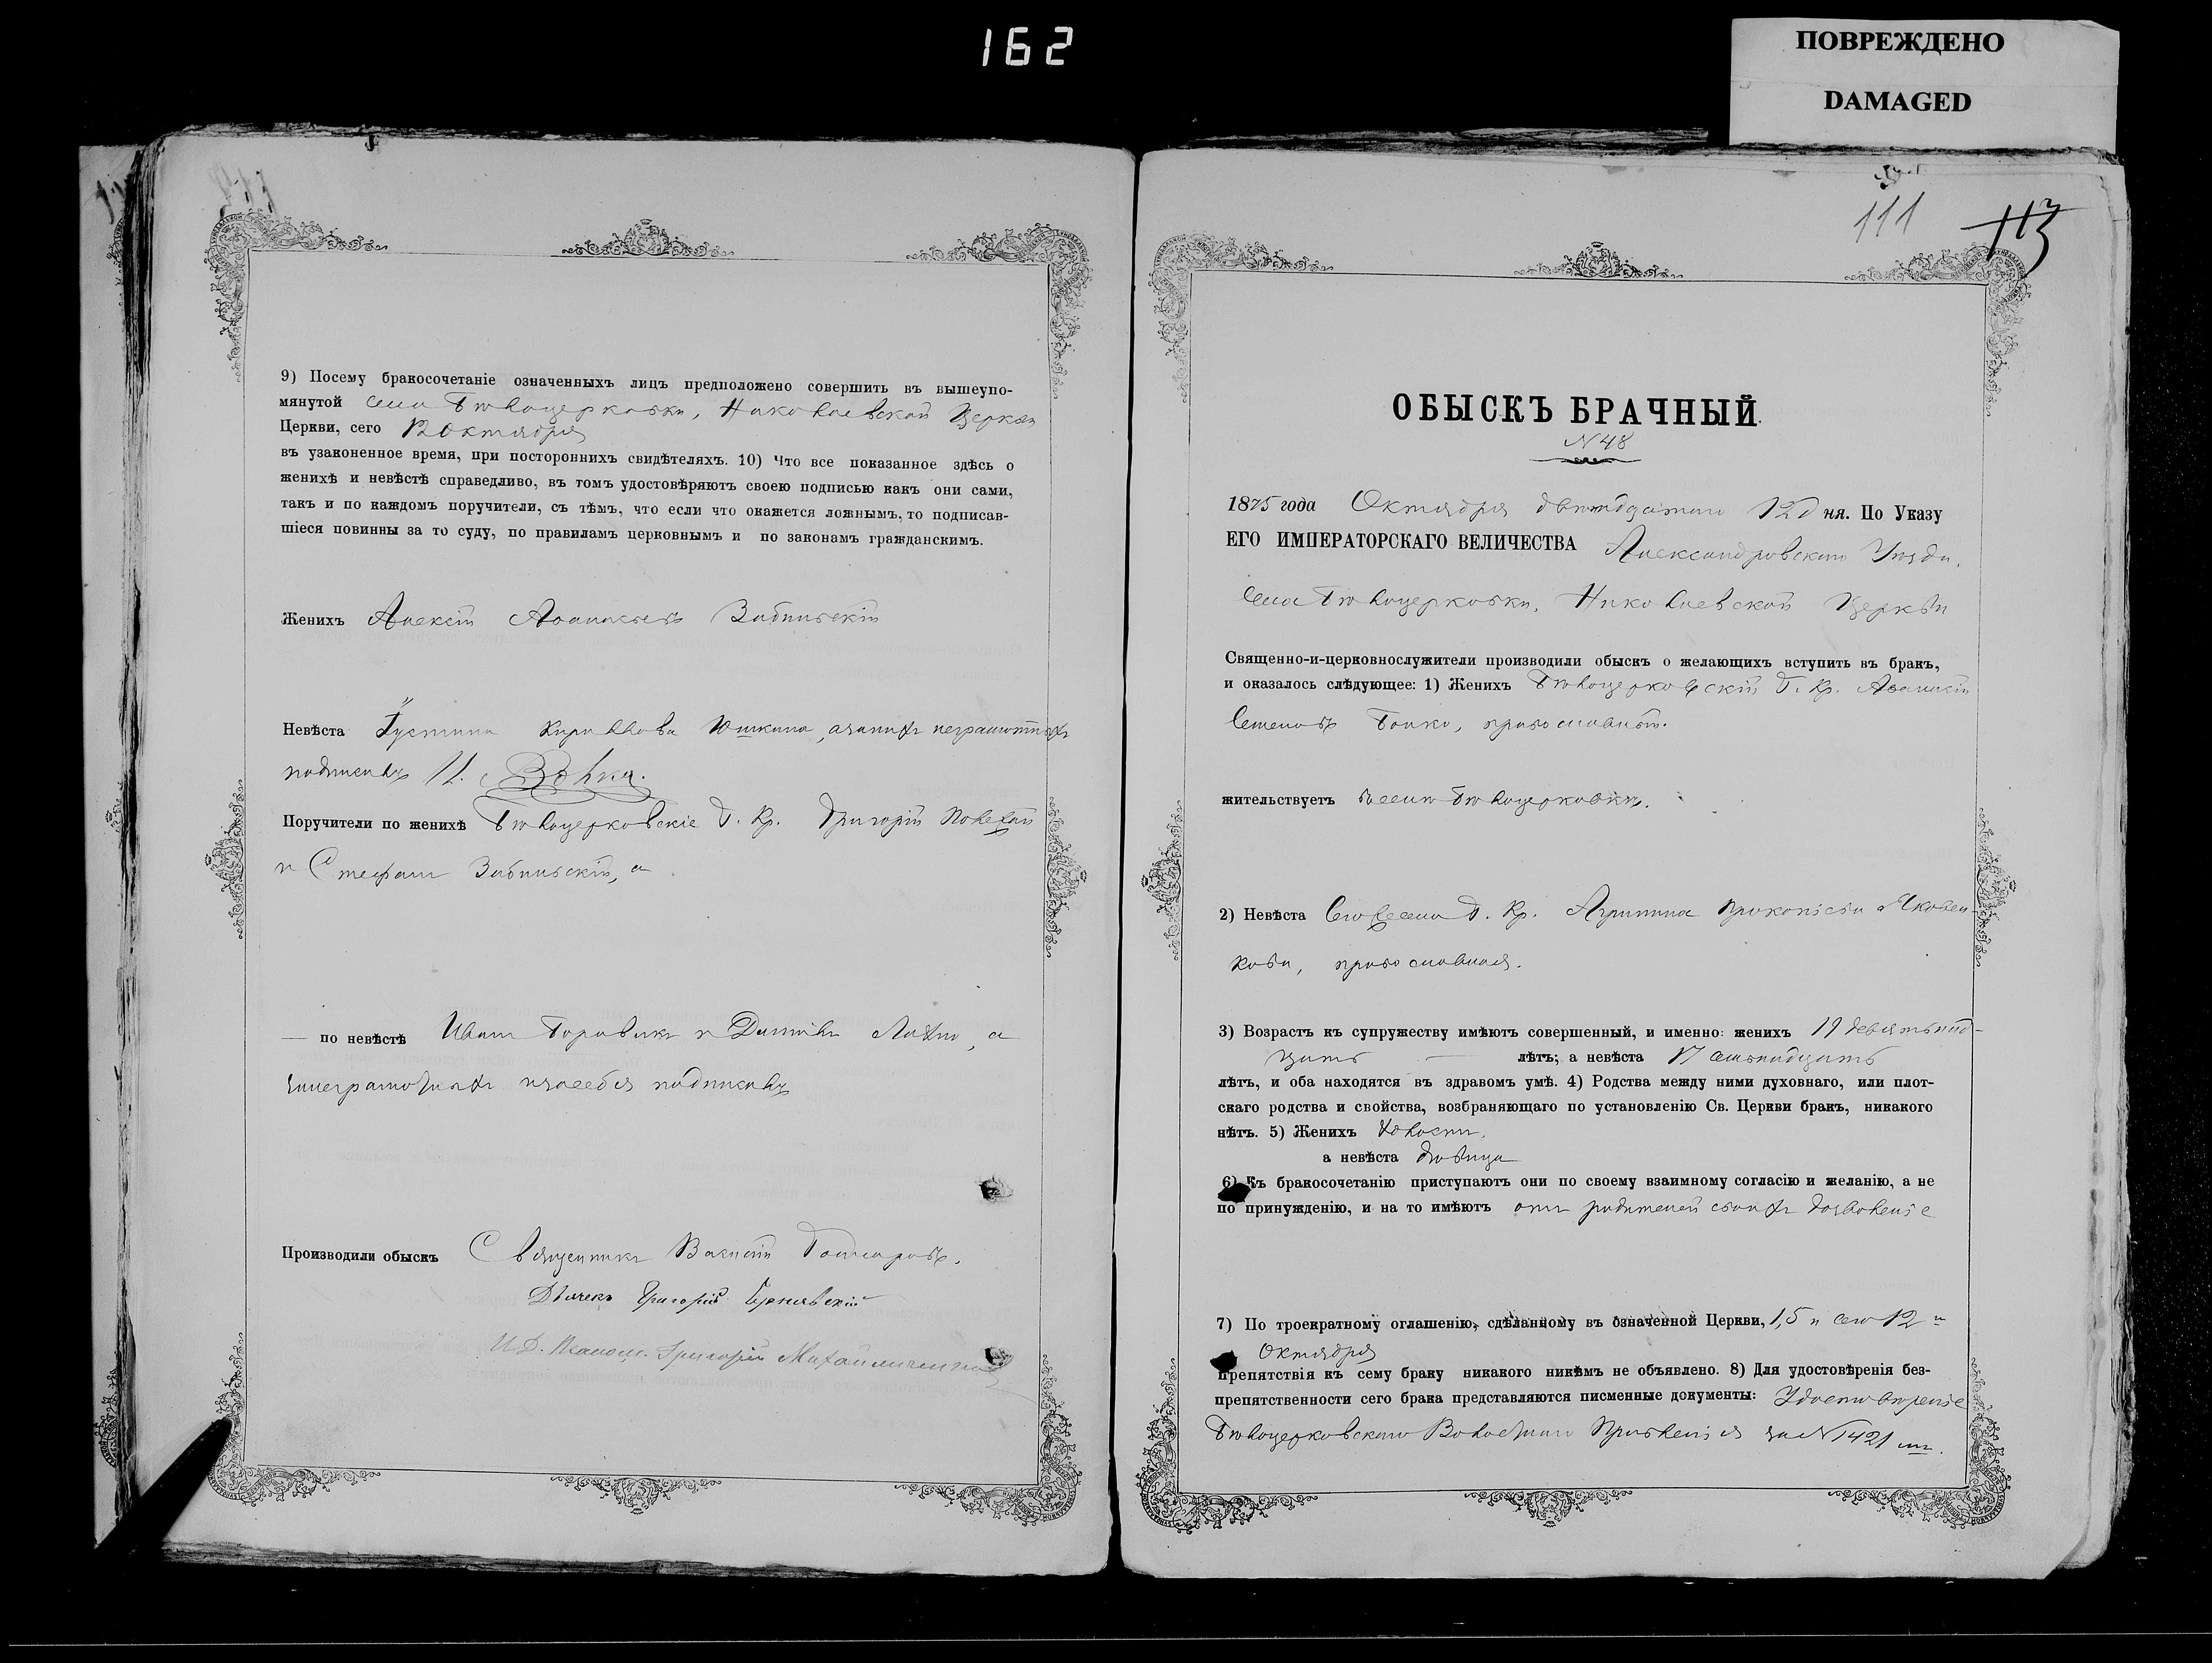 162
ПОВРЕЖДЕНО
DAMAGED
9) Посему бракосочетаніе означенныхъ лицъ предположено совершить въ вышеупо-
мянутой села Бѣлоцерковки, Николаевской Церкви
Церкви, сего 12 Октября
въ узаконенное время, при постороннихъ свидѣтеляхъ. 10) Что все показанное здѣсь о
женихѣ и невѣстѣ справедливо, въ томъ удостовѣряютъ своею подписью какъ они сами,
такъ и по каждомъ поручители, съ тѣмъ, что если что окажется ложнымъ, то подписав-
шіеся повинны за то суду, по правиламъ церковнымъ и по законамъ гражданскимъ.
Женихъ Алексій Аѳанасьевъ
Невѣста Іустина Кириллова Юшкина, а за нихъ неграмотныхъ
подписалъ
Поручители по женихѣ Бѣлоцерковскіе Г. Кр. Григорій
и Стефанъ а
— по невѣстѣ Иванъ Боровикъ и Даніилъ а
за неграмотныхъ и за себя подписалъ
Производили обыскъ Священникъ Василій Гончаровъ.
Дьячекъ Григорій
И. Д. Псаломщ. Григорій
111 113
ОБЫСКЪ БРАЧНЫЙ.
N 48
1875 года Октября двенадцатаго 12 дня. По Указу
ЕГО ИМПЕРАТОРСКАГО ВЕЛИЧЕСТВА Александровскаго Уезда,
села Бѣлоцерковки, Николаевской Церкви
Священно-и-церковнослужители производили обыскъ о желающихъ вступить въ бракъ,
и оказалось слѣдующее: 1) Женихъ Бѣлоцерковскій Г. Кр. Аѳанасій
Семеновъ Бойко, православный.
жительствуетъ въ селѣ Бѣлоцерковки.
2) Невѣста Сего села Г. Кр. Агрипина Прокопіева Яковен-
кова, православная.
3) Возрастъ къ супружеству имѣютъ совершенный, и именно: женихъ 19 девятьнад-
цать — лѣтъ; а невѣста 17 семьнадцать
лѣтъ, и оба находятся въ здравомъ умѣ. 4) Родства между ними духовнаго, или плот-
скаго родства и свойства, возбраняющаго по установленію Св. Церкви бракъ, никакого
нѣтъ. 5) Женихъ холостъ,
а невѣста дѣвица
6) Къ бракосочетанію приступаютъ они по своему взаимному согласію и желанію, а не
по принужденію, и на то имѣютъ отъ родителей своихъ дозволеніе
7) По троекратному оглашенію, сдѣланному въ означенной Церкви, 1, 5 и сего 12 ч
Октября
препятствія къ сему браку никакого никѣмъ не объявлено. 8) Для удостовѣренія без-
препятственности сего брака представляются писменные документы: Удостовѣреніе
Бѣлоцерковскаго Волостнаго Правленія за N 1421 мъ.